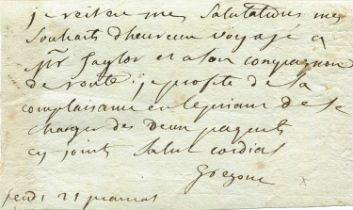 je réitere mes Salutations mes
Souhaits d'heureux voyage à
Mr Taylor et a son compagnon
de route : je profite de sa
complaisance en le priant de se
charger des deux paquets
cy joints Salut cordial
Gregoire
jeudi 21 prairial